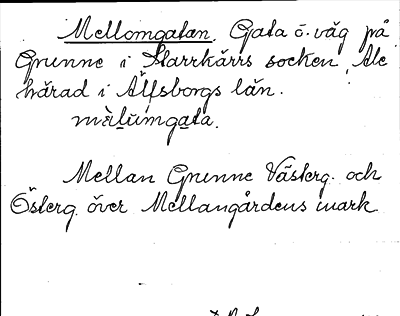 Mellomgatan. Gata o. väg på
Grunne i Starrkärrs socken, Ale
härad i Älfsborgs län.
mèlùmgata.
Mellan Grunne Västerg. och
Österg. över Mellangårdens mark